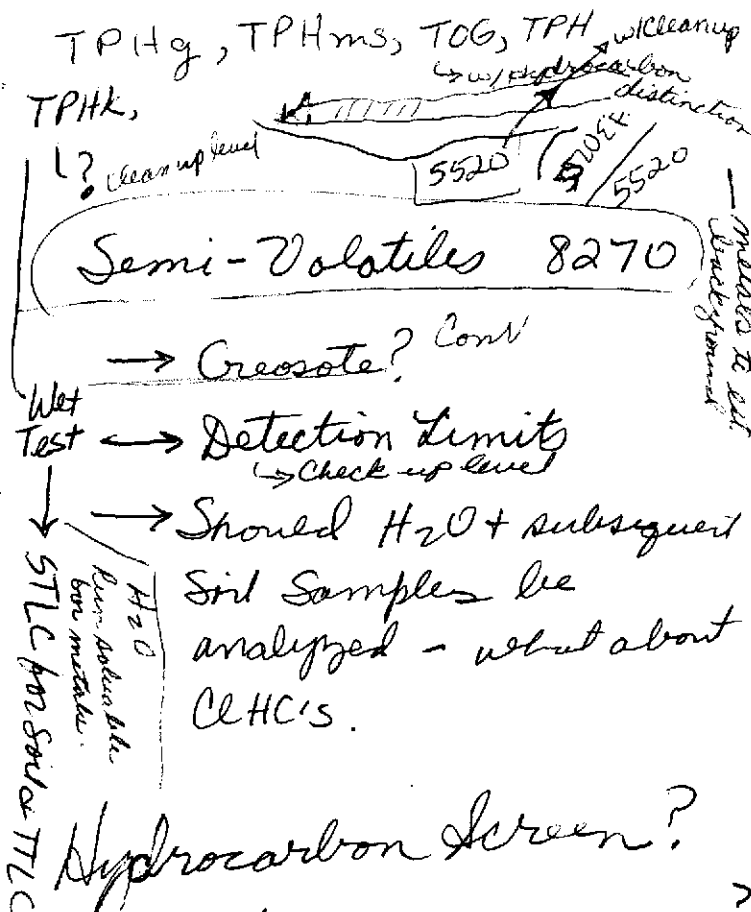 TPHg, TPHms, TOG, TPH
w/Cleanup
w/Hydrocarbon
distinction
TPHk,
? Clean up level
5520
5520EF
5520
Semi-Volatiles 8270
→ Creosote? Conv
Wet
Test ↔ Detection Limits
↳ Check up level
→ Should H2O + subsequent
Soil Samples be
analyzed - what about
ClHC's.
H2O
Run soluable
for metals.
STLC for Soil & TTLC
Hydrocarbon Screen?